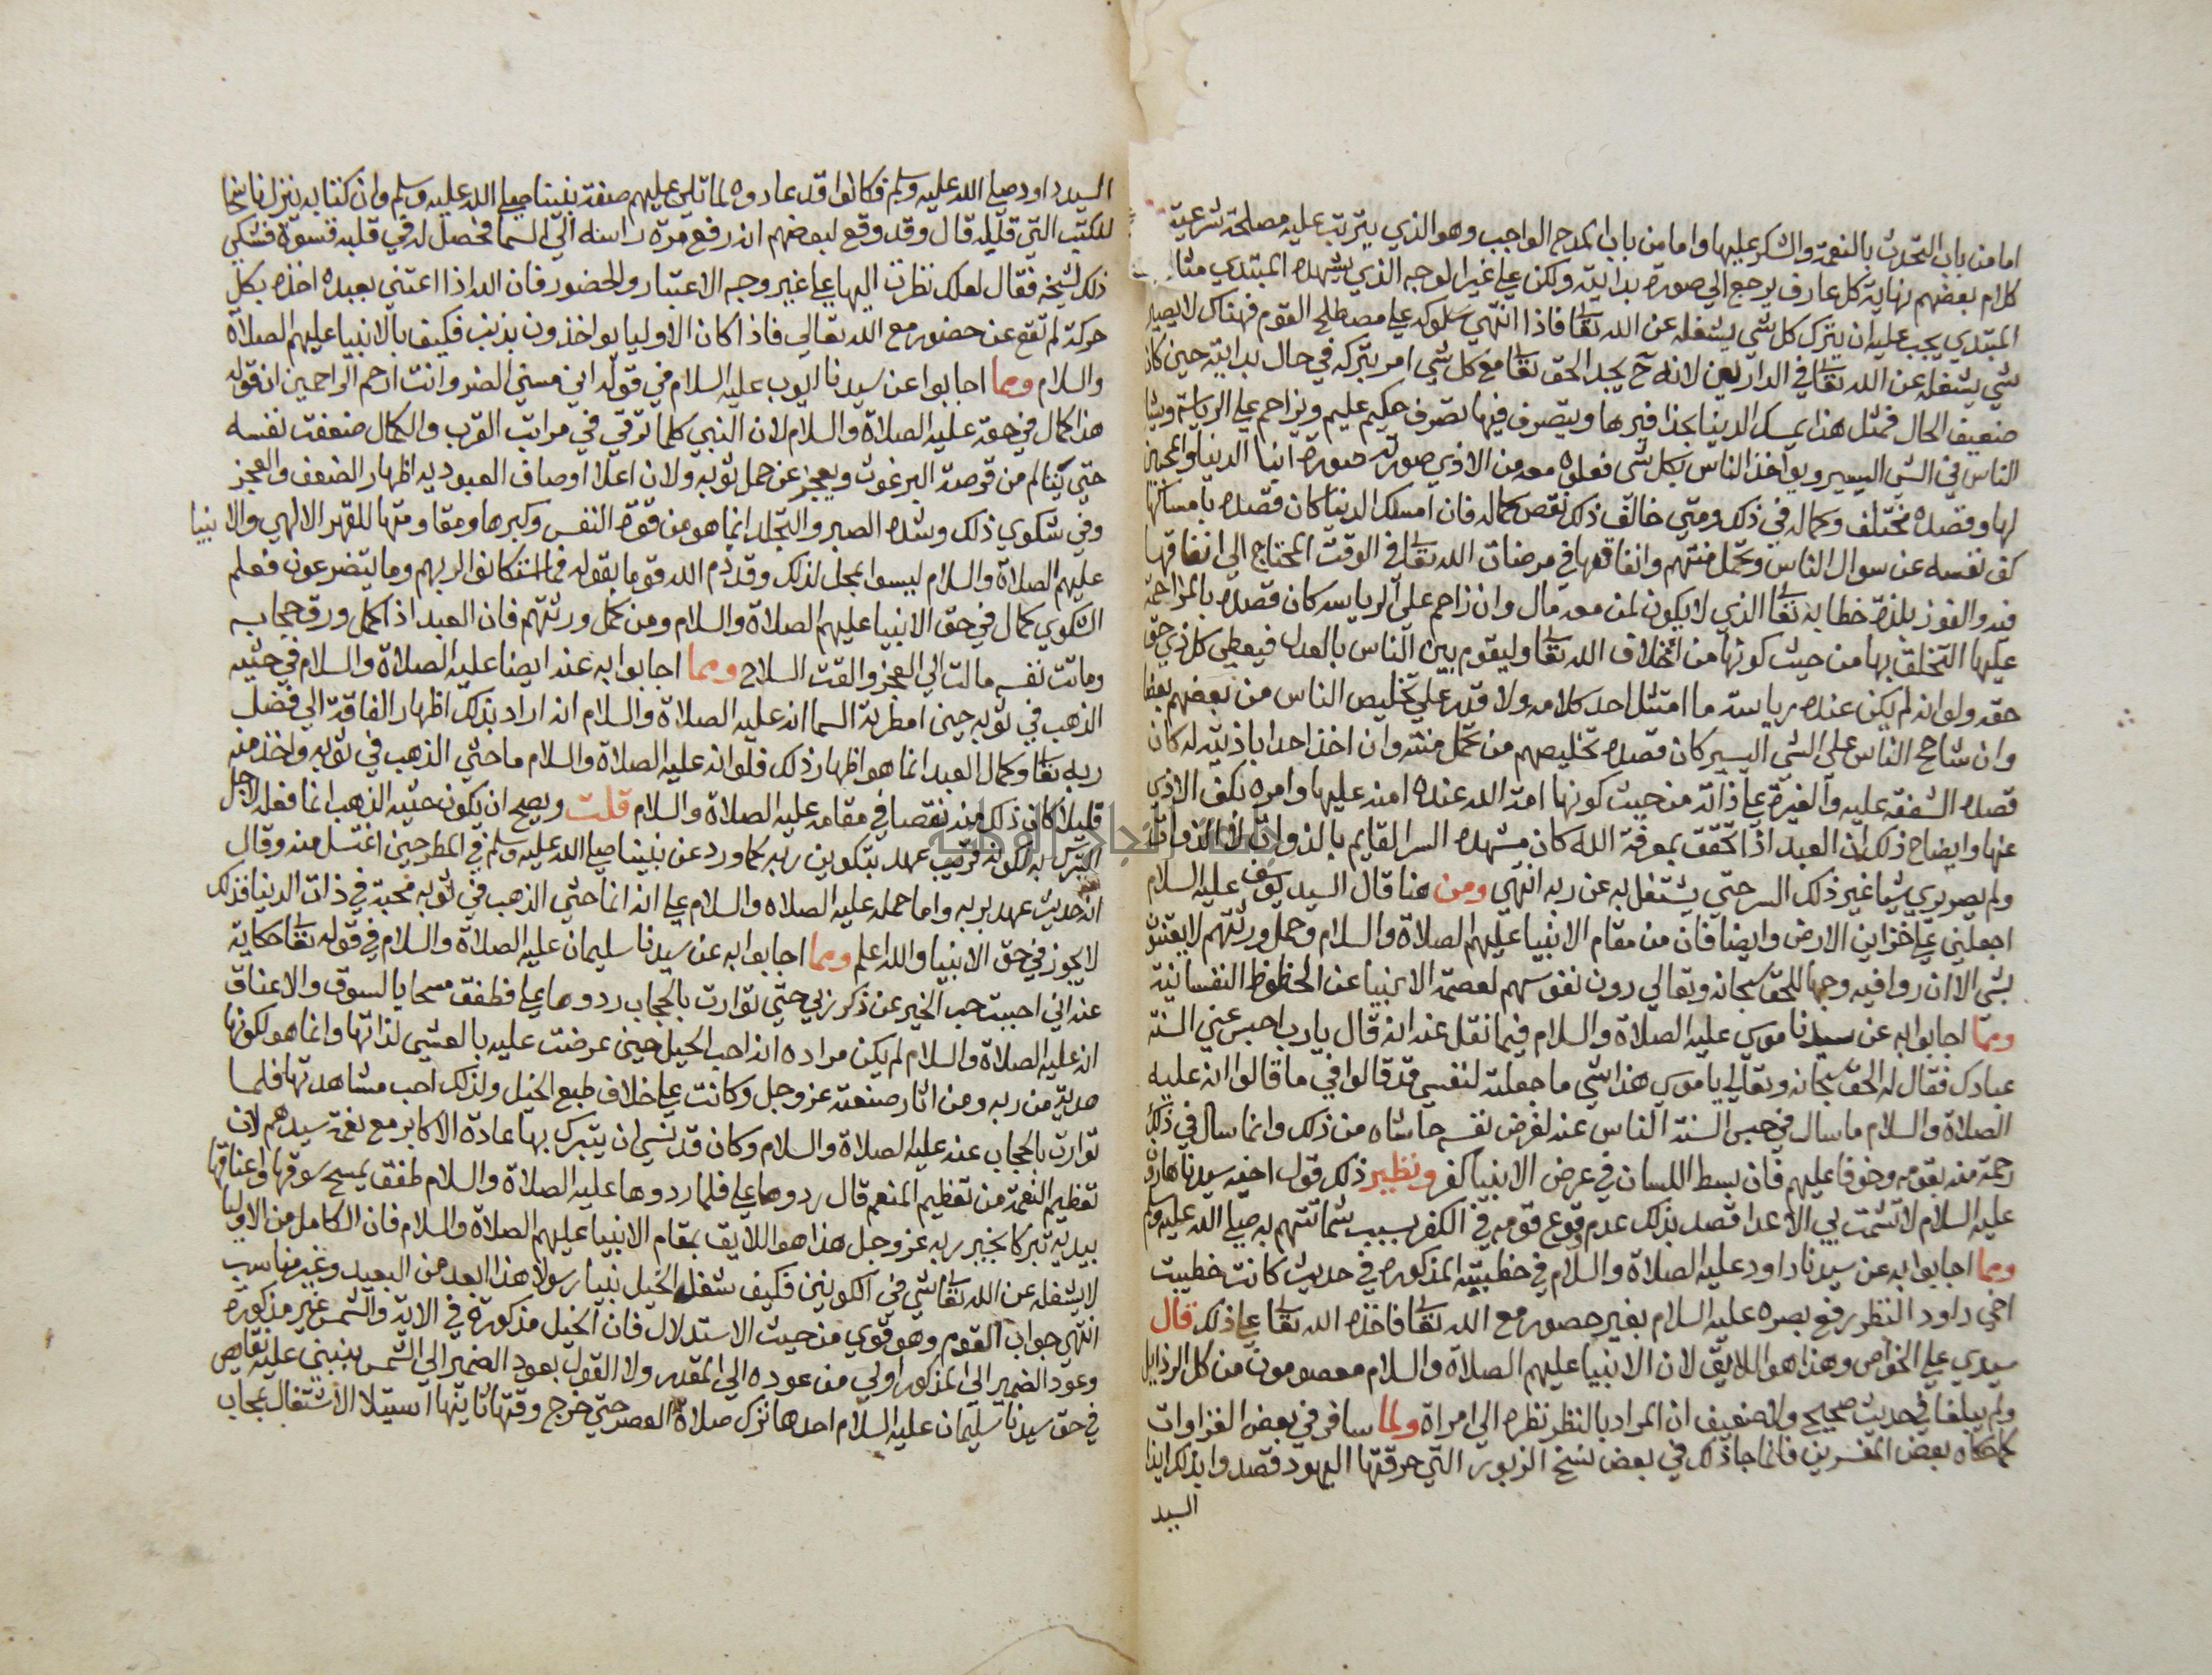 اما من باب التحدث بالنعمة والشكر عليها واما من باب المدح الواجب وهو الذي يترتب عليه مصلحة شرعية
كلام بعضهم نهاية كل عارف يرجع الي صورة بدايته ولكن علي غير الوجه الذي يشهده المبتدي مثا
المبتدي يجب عليه ان يترك كل شي يشغله عن الله تعا فاذا انتهي سلوكه علي مصطلح القوم فهناك لا يصير
شي يشغله عن الله تعا في الدارين لانه ح يجد الحق تعا مع كل شي امر بتركه في حال بدايته حين كان
ضعيف الحال فمثل هذا يمسك الدنيا بحذافيرها ويتصرف فيها تصرف حكيم عليم ويزاحم علي الرياسة ويشا
الناس في الشي اليسير ويواخذ الناس بكل شي فعلوه معه من الاذي صورته صورة ابنا الدنيا والمحبين
لها وقصده مختلف وكماله في ذلك ومتي خالف ذلك نقص كماله فان امسك الدنيا كان قصده بامساكها
كف نفسه عن سوال الناس وتحمل منتهم وانفاقها في مرضات الله تعا في الوقت المحتاج الي انفاقها
فيه والفوز بلذة خطابه تعا الذي لا يكون لمن معه مال وان زاحم علي الرياسه كان قصده بالمزاحمة
عليها التخلق بها من حيث كونها من اخلاق الله تعا وليقوم بين الناس بالعدل فيعطي كل ذي حق
حقه ولو انه لم يكن عنده رياسة ما امتثل احد كلامه ولا قدر علي تخليص الناس من بعضهم بعضا
وان شاحح الناس علي الشي اليسير كان قصده تخليصهم من تحمل منته وان اخذ احدا باذيته له كان
قصده الشفقه عليه والغيرة علي ذاته من حيث كونها امة الله عنده امنه عليها وامره بكف الاذي
عنها وايضاح ذلك ان العبد اذا تحقق بمعرفة الله كان مشهده السر القايم بالذوات لا الذوات
ولم يصر يري شيا غير ذلك السر حتي يشتغل به عن ربه انتهي ومن هنا قال السيد يوسف عليه السلام
اجعلني علي خزاين الارض وايضا فان من مقام الانبيا عليهم الصلاة والسلام وكمل ورثتهم لا يعتنون
بشي الا ان راوا فيه وجها للحق سبحانه وتعالي دون نفوسهم لعصمة الانبيا عن الحظوظ النفسانية
ومما اجابوا به عن سيدنا موسي عليه الصلاة والسلام فيما نقل عنه انه قال يارب احبس عني السنة
عبادك فقال له الحق سبحانه وتعالي يا موسي هذا شي ما جعلته لنفسي قد قالوا في ما قالوا انه عليه
الصلاة والسلام ما سال في حبس السنة الناس عنه لغرض نفسه حاشاه من ذلك وانما سال في ذلك
رحمة منه بقومه وخوفا عليهم فان بسط اللسان في عرض الانبيا كفر ونظير ذلك قول اخيه سيدنا هارون
عليه السلام لا تشمت بي الاعدا قصد بذلك عدم وقوع قومه في الكفر بسبب شماتتهم به صلي الله عليه وسلم
ومما اجابوا به عن سيدنا داود عليه الصلاة والسلام في خطيئته المذكوره في حديث كانت خطيبت
اخي داود النظر رفع بصره عليه السلام بغير حضور مع الله تعا فاخذه الله تعا علي ذلك قال
سيدي علي الخواص وهذا هو اللايق لان الانبيا عليهم الصلاة والسلام معصومون من كل الرذايل
ولم يبلغنا في حديث صحيح ولا ضعيف ان المراد بالنظر نظره الي امراة ولما سافر في بعض الغزاوات
كما حكاه بعض المفسرين فانما جا ذلك في بعض نسخ الزبور التي حرقتها اليهود قصدوا بذلك ايذا
السيد
السيد داود صلي الله عليه وسلم فكانوا قد عادوه لما تلي عليهم صفة نبينا صلي الله عليه وسلم وان كتابه ينزل ناسخا
للكتب التي قبله قال وقد وقع لبعضهم انه رفع مرة راسه الي السما فحصل له في قلبه قسوة فشكي
ذلك لشيخه فقال لعلك نظرت اليها علي غير وجه الاعتبار والحضور فان الله اذا اعتني بعبده اخذه بكل
حركة لم تقع عن حضور مع الله تعالي فاذا كان الاوليا يواخذون بذنب فكيف بالانبيا عليهم الصلاة
والسلام ومما اجابوا عن سيدنا ايوب عليه السلام في قوله اني مسني الضر وانت ارحم الراحمين ان قوله
هذا كمال في حقه عليه الصلاة والسلام لان النبي كلما ترقي في مراتب القرب والكمال ضعفت نفسه
حتي يتالم من قرصة البرغوث ويعجز عن حمل ثوبه ولان اعلا اوصاف العبوديه اظهار الضعف والعجز
وفي شكوي ذلك وشدة الصبر والتجلد انما هو من قوة النفس وكبرها ومقاومتها للقهر الالهي والانبيا
عليهم الصلاة والسلام ليسوا بمحل لذلك وقد ذم الله قوما بقوله فما استكانوا لربهم وما يتضرعون فعلم
الشكوي كمال في حق الانبيا عليهم الصلاة والسلام ومن كمل ورثتهم فان العبد اذا كمل ورق حجابه
وماتت نفسه مالت الي العجز والقت السلاح ومما اجابوا به عنه ايضا عليه الصلاة والسلام في حثيه
الذهب في ثوبه حين امطرته السما انه عليه الصلاة والسلام انه اراد بذلك اظهار الفاقة الي فضل
ربه تعا وكمال العبد انما هو اظهار ذلك فلو انه عليه الصلاة والسلام ما حثي الذهب في ثوبه واخذ منه
قليلا كان ذلك منه نقصا في مقامه عليه الصلاة والسلام قلت ويصح ان يكون حثيه الذهب انما فعله لاجل
التبرك به لكونه قريب عهد بتكوين ربه كما ورد عن نبينا صلي الله عليه وسلم في المطر حين اغتسل منه وقال
انه حديث عهد بربه واما حمله عليه الصلاه والسلام علي انه انما حثي الذهب في ثوبه محبة في ذات الدنيا فذلك
لا يجوز في حق الانبيا والله اعلم ومما اجابوا به عن سيدنا سليمان عليه الصلاة والسلام في قوله تعا حكاية
عنه اني احببت حب الخير عن ذكر ربي حتي توارت بالحجاب ردوها علي فطفق مسحا بالسوق والاعناق
انه عليه الصلاة والسلام لم يكن مراده انه احب الخيل حين عرضت عليه بالعشي لذاتها وانما هو لكونها
هدية من ربه ومن اثار صنعته عز وجل وكانت علي خلاف طبع الخيل ولذلك احب مشاهدتها فلما
توارت بالحجاب عنه عليه الصلاة والسلام وكان قد نسي ان يتبرك بها عادة الاكابر مع نعمة سيدهم لان
تعظيم النعمة من تعظيم المنعم قال ردوها علي فلما ردوها عليه الصلاة والسلام طفق يمسح سوقها واعناقها
بيديه تبركا بخير ربه عز وجل هذا هو اللايق بمقام الانبيا عليهم الصلاة والسلام فان الكامل من الاوليا
لا يشغله عن الله تعا شي في الكونين فكيف تشغل الخيل نبيا رسولا هذا ابعد من البعيد وغير مناسب
انتهي جواب القوم وهو قوي من حيث الاستدلال فان الخيل مذكورة في الاية والشمس غير مذكورة
وعود الضمير الي المذكور اولي من عوده الي المقدر ولا القول بعود الضمير الي الشمس ينبني عليه نقايص
في حق سيدنا سليمان عليه السلام احدها ترك صلاة العصر حتي خرج وقتها ثانيتها استيلا الاشتغال بحاب